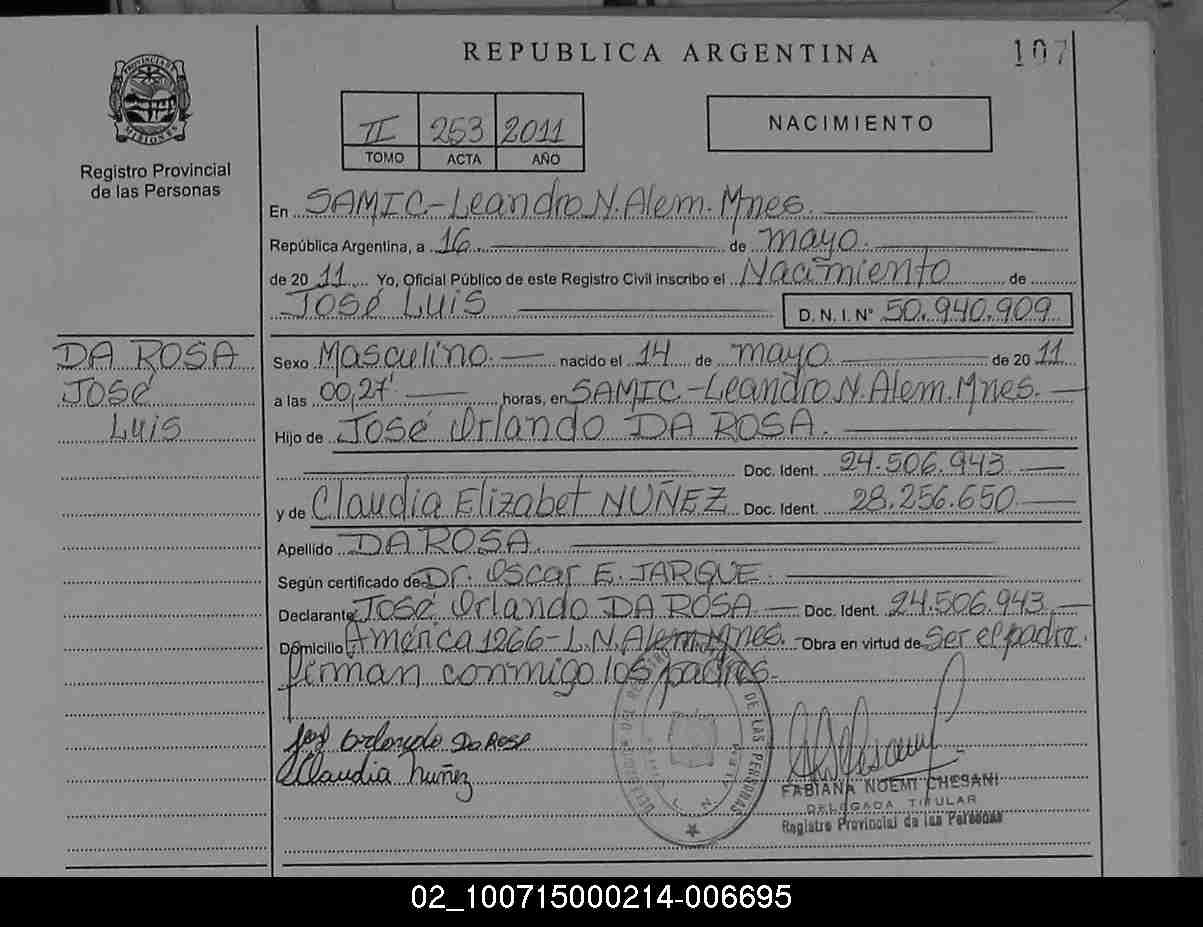 REPUBLICA ARGENTINA
107
PROVINCIA DE MISIONES
Registro Provincial
de las Personas
II 253 2011
TOMO ACTA AÑO
NACIMIENTO
En SAMIC-Leandro N. Alem. Mnes.
República Argentina, a 16 de mayo
de 2011 Yo, Oficial Público de este Registro Civil inscribo el Nacimiento de
José Luis D. N. I. N° 50.940.909
DA ROSA
José
Luis
Sexo Masculino. nacido el 14 de mayo de 2011
a las 00,27' horas, en SAMIC.-Leandro N. Alem. Mnes.
Hijo de José Orlando DA ROSA.
Doc. Ident. 24.506.943
y de Claudia Elizabet NUÑEZ Doc. Ident. 28.256.650
Apellido DA ROSA.
Según certificado de Dr. Oscar E. JARQUE.
Declarante José Orlando DA ROSA. Doc. Ident. 24.506.943
Domicilio América 1266-L.N. Alem. Mnes. Obra en virtud de Ser el padre.
firman conmigo los padres.
José Orlando Da Rosa
Claudia Nuñez
DEL REGISTRO DE LAS PERSONAS
FABIANA NOEMI CHESANI
DELEGADA TITULAR
Registro Provincial de las Personas
02_100715000214-006695